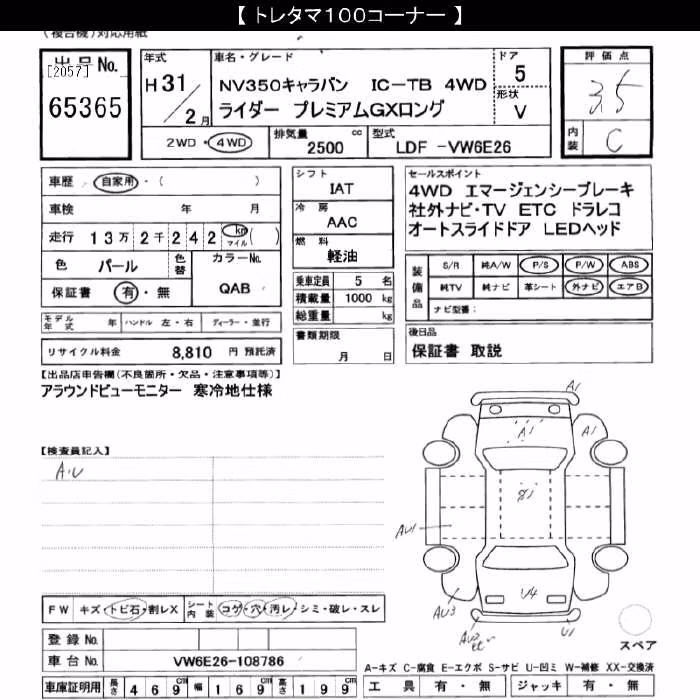 【 トレタマ100コーナー 】
(複合機)対応用紙
出品No.
[2057]
65365
年式
H 31/2月
車名・グレード
NV350キャラバン IC-TB 4WD
ライダー プレミアムGXロング
ドア
5
形状
V
評価点
3.5
内装
C
2WD・4WD
排気量
2500 cc
型式
LDF -VW6E26
車歴 自家用・( )
車検 年 月
走行 13万2千242 km マイル ( )
色 パール
色替
カラーNo.
QAB
保証書 有・無
シフト
IAT
冷房
AAC
燃料
軽油
乗車定員 5 名
積載量 1000 kg
総重量 kg
書類期限
月 日
セールスポイント
4WD エマージェンシーブレーキ
社外ナビ・TV ETC ドラレコ
オートスライドドア LEDヘッド
装備品
S/R 純A/W P/S P/W ABS
純TV 純ナビ 革シート 外ナビ エアB
ナビ型番:
モデル年式 年 ハンドル 左・右 ディーラー・並行
リサイクル料金 8,810 円 預託済
後日品
保証書 取説
【出品店申告欄(不良箇所・欠品・注意事項等)】
アラウンドビューモニター 寒冷地仕様
【検査員記入】
A・U
A1
A1
A1
AU1
U4
AU3
U1
FW キズ・トビ石・割レX
シート内装 コゲ・穴・汚レ・シミ・破レ・スレ
登録No.
車台No. VW6E26-108786
車庫証明用 長さ 469 cm 幅 169 cm 高さ 199 cm
スペア
A-キズ C-腐食 E-エクボ S-サビ U-凹ミ W-補修 XX-交換済
工具 有・無 ジャッキ 有・無